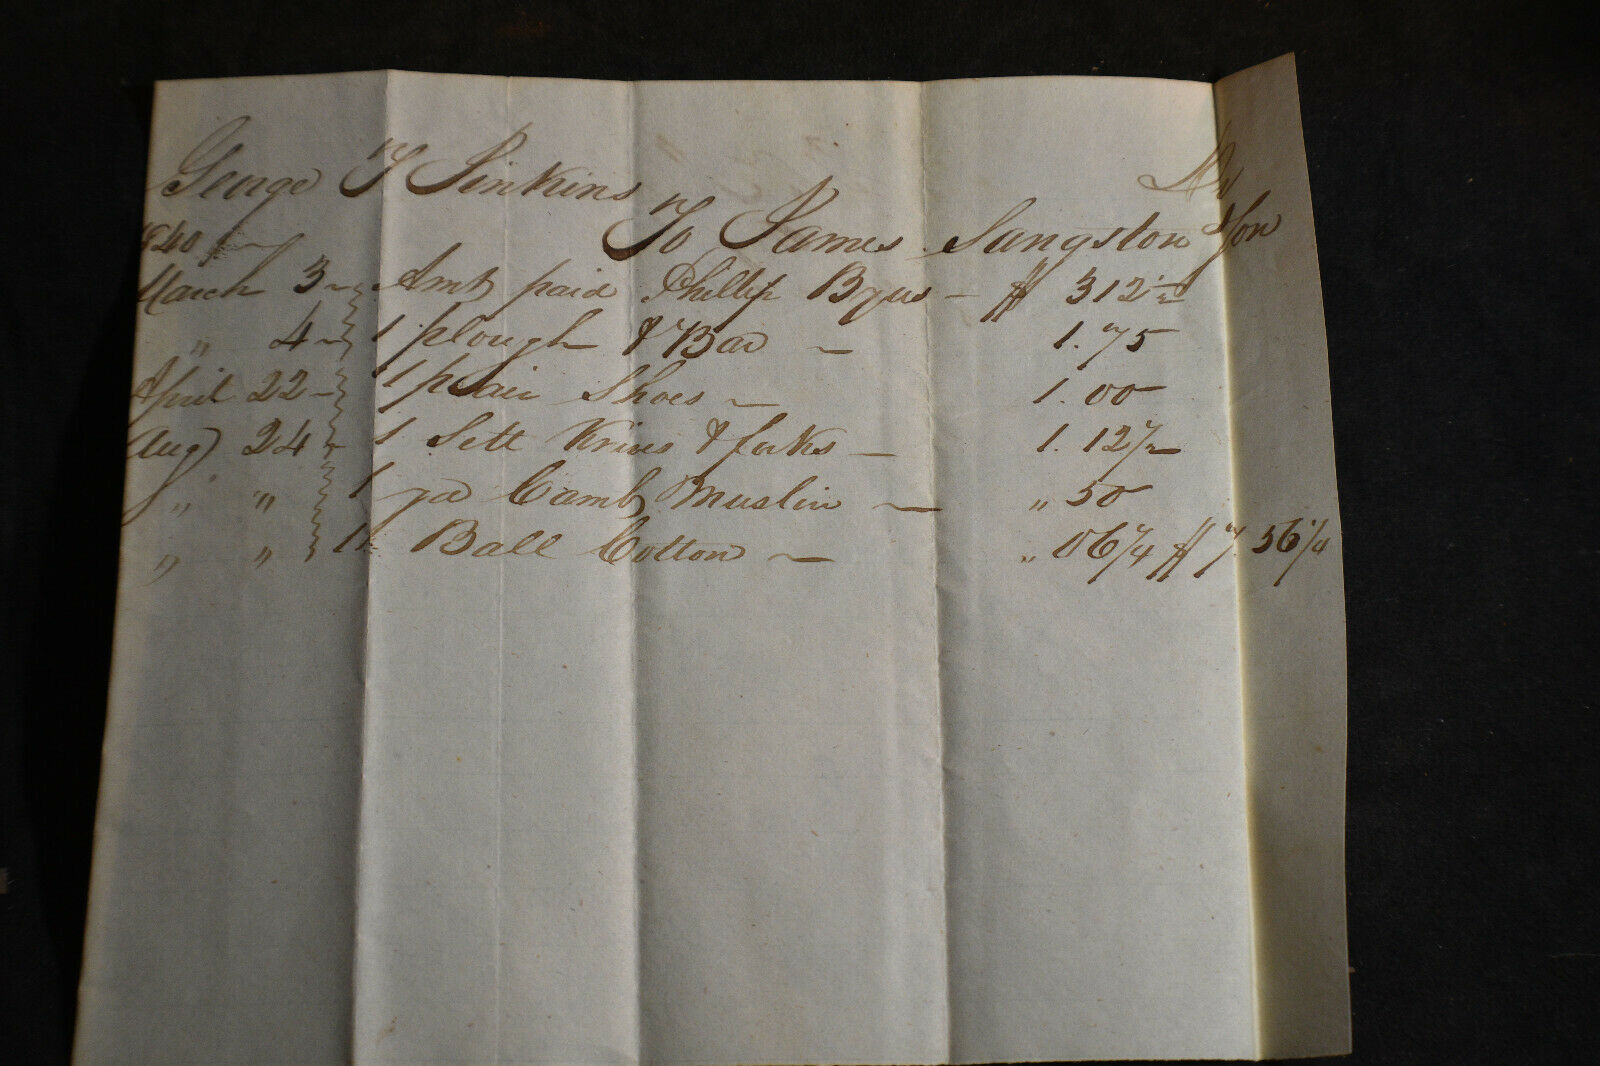 George T Jinkins Dr
To James Sangston & Son
1840
March 3 Amt paid Phillip Byus — $ 3 12 1/2
" 4 1 plough & Bar — 1.75
April 22 1 pair Shoes — 1.00
Aug 24 1 Sett Knives & forks — 1.12 1/2
" " 1 yd Camb Muslin — " 50
" " 1 Ball Cotton — " 06 1/4 $ 7.56 1/4